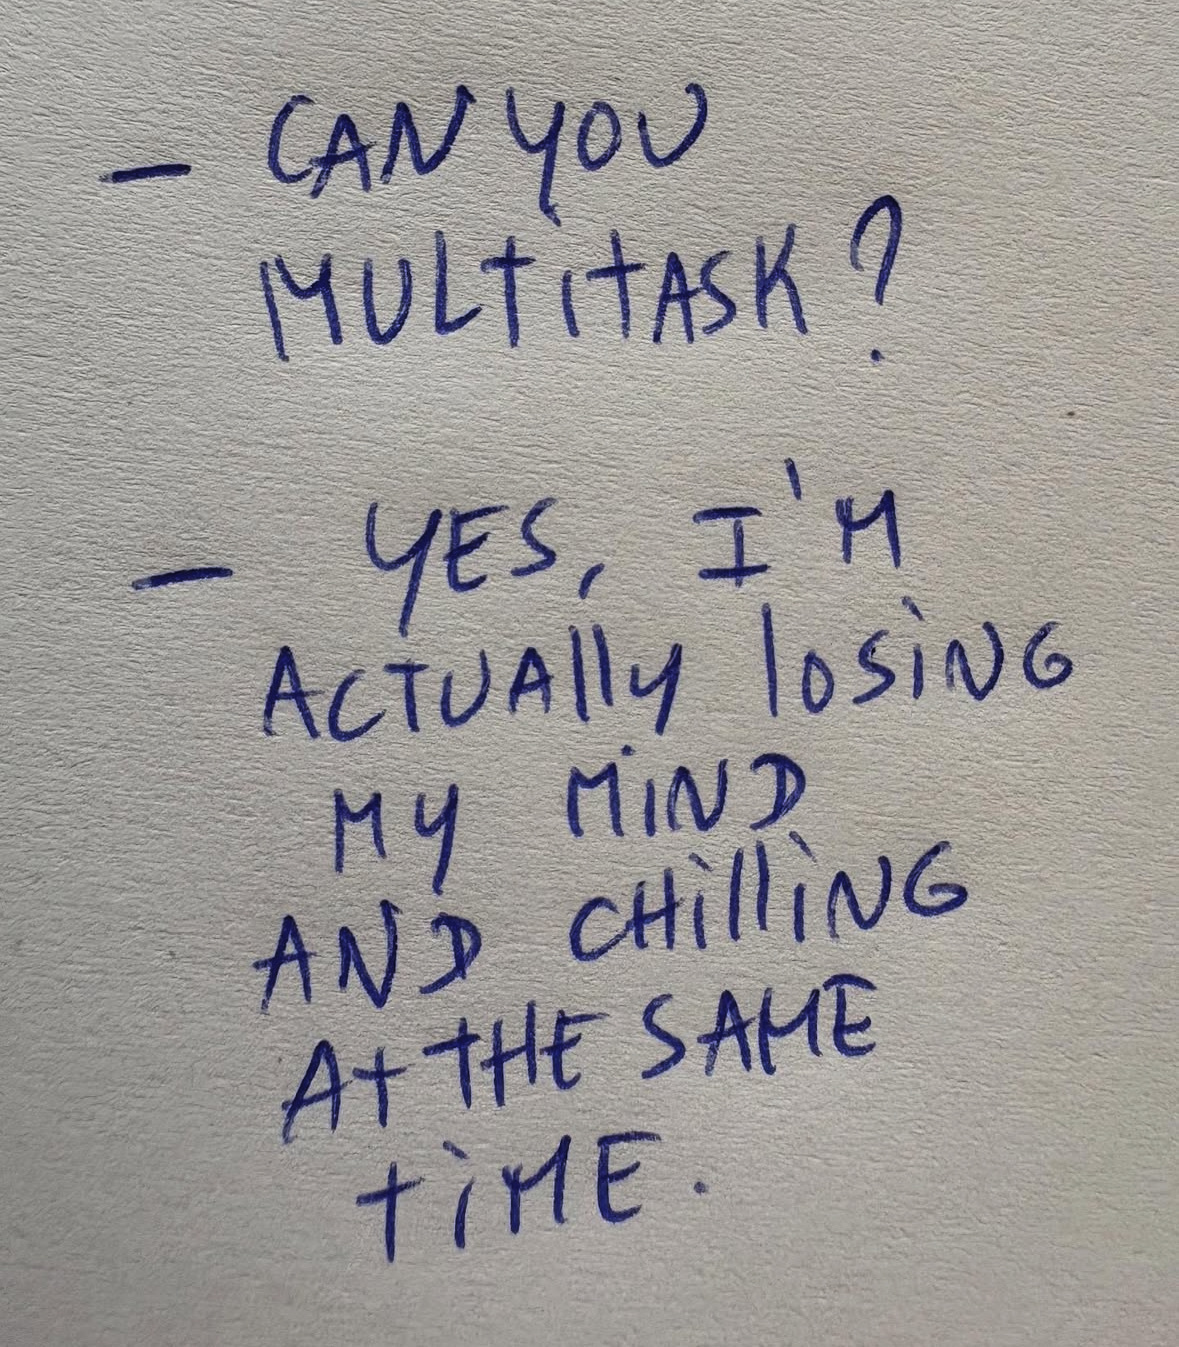 - CAN YOU
MULTITASK?
- YES, I'M
ACTUAlly losiNG
MY MiND
AND CHilliNG
At tHE SAME
tiME.